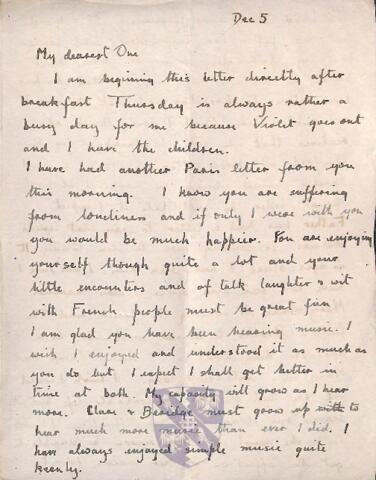 Dec 5
My dearest One
I am begining this letter directly after
breakfast Thursday is always rather a
busy day for me because Violet goes out
and I have the children.
I have had another Paris letter from you
this morning. I know you are suffering
from loneliness and if only I were with you
you would be much happier. You are enjoying
yourself though quite a lot and your
little encounters and of talk laughter & wit
with French people must be great fun
I am glad you have been hearing music. I
wish I enjoyed and understood it as much as
you do but I expect I shall get better in
time at both. My capacity will grow as I hear
more. Clare & must grow up with to
hear much more music than ever I did. I
have always enjoyed simple music quite
keenly.